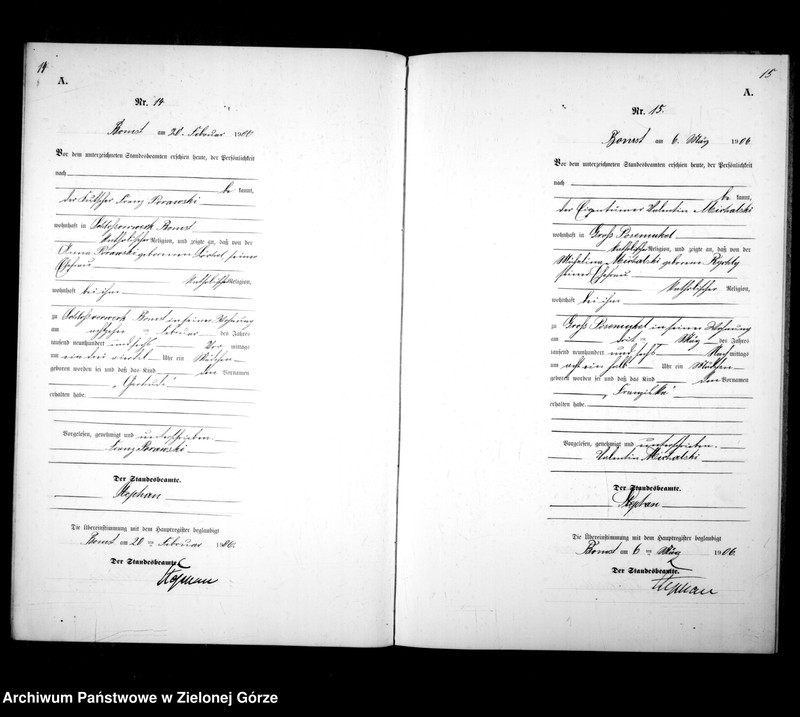 14
A.
Nr. 14
Bomst am 20. Februar 1906
Vor dem unterzeichneten Standesbeamten erschien heute, der Persönlichkeit
nach
be kannt,
der Kutscher Franz Borowski
wohnhaft in Schloßvorwerk Bomst
katholischer Religion, und zeigte an, daß von der
Anna Borowski geborenen seiner
Ehefrau
katholischer Religion,
wohnhaft bei ihm
zu Schloßvorwerk Bomst in seiner Wohnung
am ten Februar des Jahres
tausend neunhundert und sechs Vor mittags
um ein drei viertel Uhr ein Mädchen
geboren worden sei und daß das Kind den Vornamen
„Gertrud"
erhalten habe.
Vorgelesen, genehmigt und unterschrieben.
Franz Borowski
Der Standesbeamte.
Stephan
Die Übereinstimmung mit dem Hauptregister beglaubigt
Bomst am 20 ten Februar 1906.
Der Standesbeamte.
Stephan
15
A.
Nr. 15.
Bomst am 6. März 1906.
Vor dem unterzeichneten Standesbeamten erschien heute, der Persönlichkeit
nach
be kannt,
der Eigentümer Valentin Michalski
wohnhaft in Groß Posemukel
katholischer Religion, und zeigte an, daß von der
Michalina Michalski geborene Rychly
seiner Ehefrau
katholischer Religion,
wohnhaft bei ihm
zu Groß Posemukel in seiner Wohnung
am drit ten März des Jahres
tausend neunhundert und sechs Nach mittags
um acht ein halb Uhr ein Mädchen
geboren worden sei und daß das Kind den Vornamen
„Franziska"
erhalten habe.
Vorgelesen, genehmigt und unterschrieben.
Valentin Michalski
Der Standesbeamte.
Stephan
Die Übereinstimmung mit dem Hauptregister beglaubigt
Bomst am 6 ten März 1906.
Der Standesbeamte.
Stephan
Archiwum Państwowe w Zielonej Górze